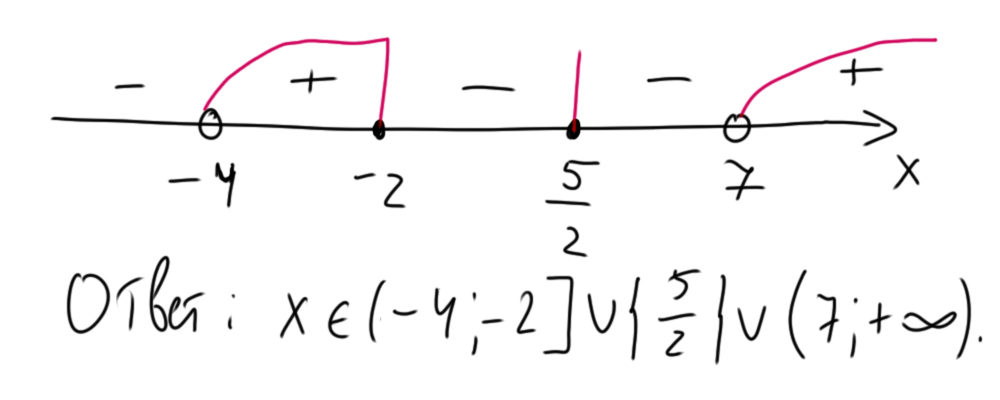 - + - - +
-4 -2 5/2 7 x
Ответ: x ∈ (-4;-2] ∪ {5/2} ∪ (7;+∞).